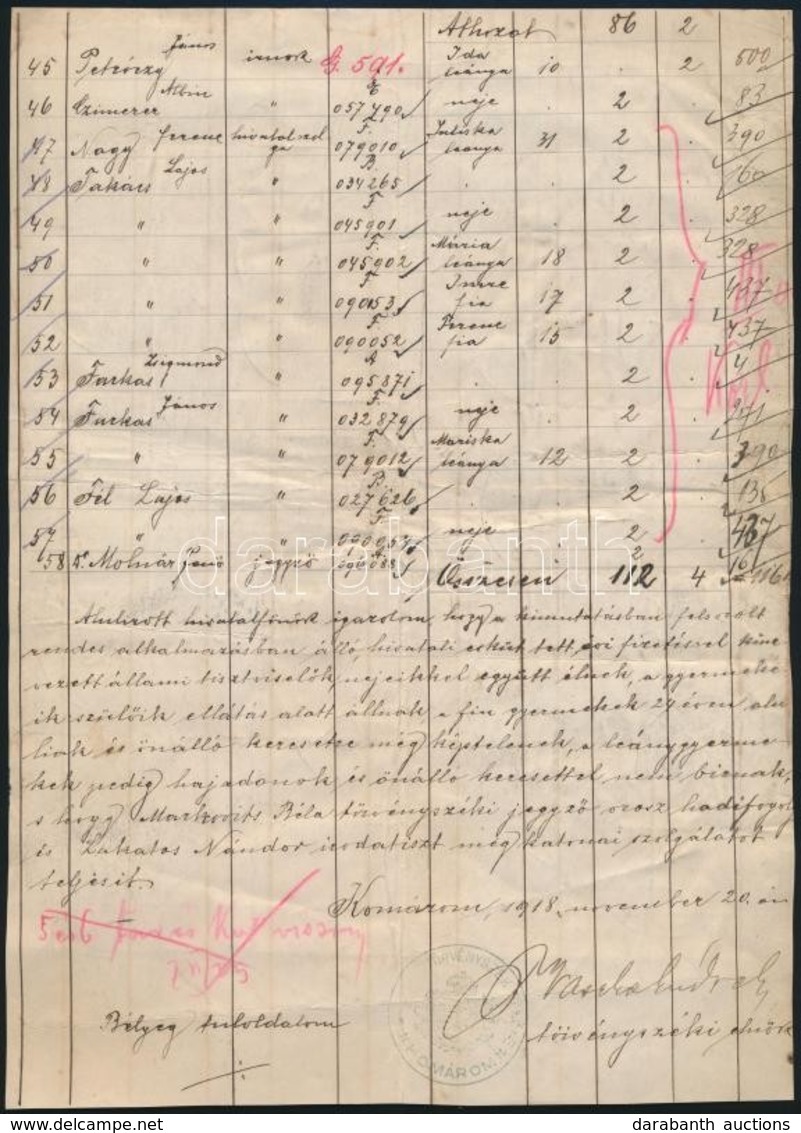 Áthozat 86 2
45 Petróczy János irnok G. 591. Ida leánya 10 . 2 500
46 Czimerer Albin " E 057490 neje . 2 . 83
47 Nagy Ferenc hivatalszolga F. 079010 Juliska leánya 31 2 . 390
48 Takács Lajos " B. 034265 . . 2 . 160
49 " " F 045901 neje . 2 . 328
50 " " F. 045902 Mária leánya 18 2 . 328
51 " " F 090053 Imre fia 17 2 . 437
52 " " F. 090052 Ferenc fia 15 2 . 437
53 Farkas Zsigmond " A 095871 . . 2 . 4
54 Farkas János " F. 032879 neje . 2 . 271
55 " " F. 079012 Mariska leánya 12 2 . 390
56 Fél Lajos " B. 027626 . . 2 . 138
57 " " F neje . 2 . 437
58 Dr. Molnár Jenő jegyző 2 16
Összesen 112 4
Alulirott hivatalfőnök igazolom, hogy a kimutatásban felsorolt
rendes alkalmazásban álló, hivatali esküt tett, évi fizetéssel kine-
vezett állami tisztviselők, nejeikkel együtt élnek, a gyermeke-
ik szülőik ellátás alatt állnak, a fiu gyermekek 24 éven alu-
liak és önálló keresetre még képtelenek, a leánygyerme-
kek pedig hajadonok és önálló keresettel nem birnak,
s hogy Markovits Béla törvényszéki jegyző orosz hadifogoly
és Lakatos Nándor irodatiszt még katonai szolgálatot
teljesit.
Komárom, 1918. november 20.-án
törvényszéki elnök
Bélyeg tuloldalom
KOMÁROM
darabanth
darabanth auctions